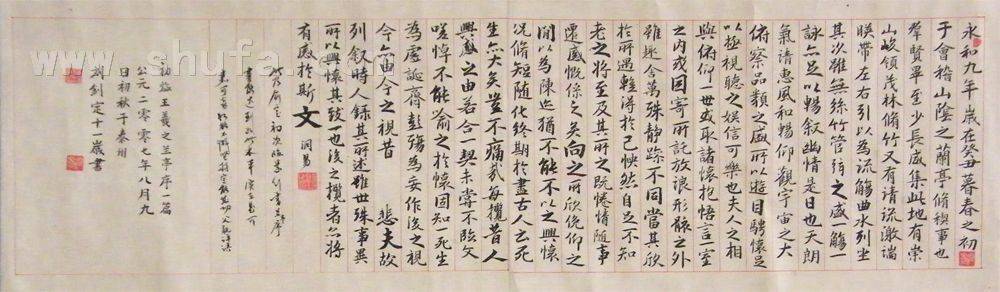 永和九年歲在癸丑暮春之初
于會稽山陰之蘭亭脩稧事也
羣賢畢至少長咸集此地有崇
山峻領茂林脩竹又有清流激湍
暎帶左右引以為流觴曲水列坐
其次雖無絲竹管弦之盛一觴一
詠亦足以暢敘幽情是日也天朗
氣清惠風和暢仰觀宇宙之大
俯察品類之盛所以遊目騁懷足
以極視聽之娛信可樂也夫人之相
與俯仰一世或取諸懷抱悟言一室
之内或因寄所託放浪形骸之外
雖趣舍萬殊静躁不同當其欣
於所遇輙得於己怏然自足不知
老之將至及其所之既惓情隨事
遷感慨係之矣向之所欣俛仰之
閒以為陳迹猶不能不以之興懷
況脩短隨化終期於盡古人云死
生亦大矣豈不痛哉每攬昔人
興感之由若合一契未嘗不臨文
嗟悼不能喻之於懷固知一死生
為虛誕齊彭殤為妄作後之視
今亦由今之視昔 悲夫故
列敘時人錄其所述雖世殊事異
所以興懷其致一也後之攬者亦將
有感於斯文
初臨王羲之蘭亭序一篇
公元二〇〇七年八月九
日初秋于秦州
劍定十一歲書
www.shufa.